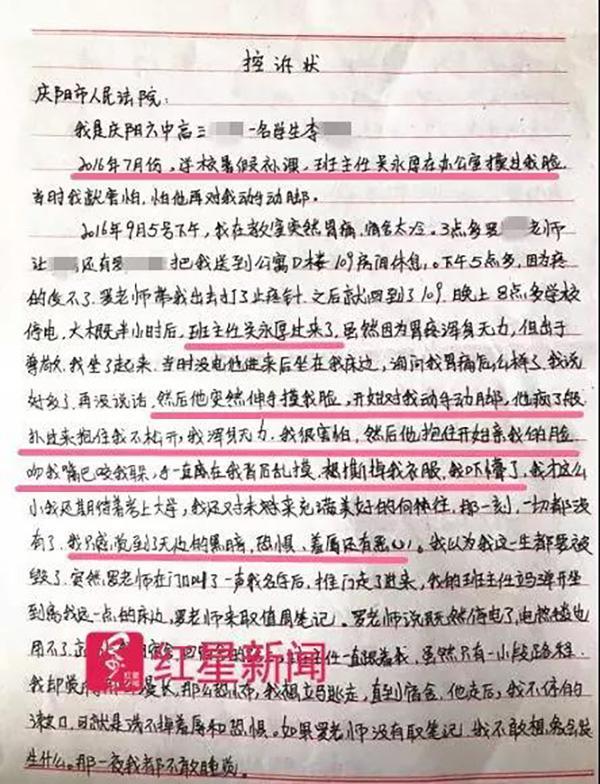 控诉状
庆阳市人民法院:
我是庆阳六中高三 一名学生李
2016年7月份,学校暑候补课,班主任吴永厚在办公室摸过我脸
当时我就害怕,怕他再对我动手动脚。
2016年9月5号下午,我在教室突然胃痛,宿舍太冷。3点多罗 老师
让 还有罗 把我送到公寓D楼109房间休息。下午5点多,因为疼
的受不了.罗老师带我出去打了止疼针.之后就回到了109.晚上8点多学校
停电,大概半小时后,班主任吴永厚过来了,虽然因为胃疼浑身无力,但出于
尊敬,我坐了起来.当时没电他进来后坐在我床边,询问我胃痛怎么样了.我说
好多了.再没说话,然后他突然伸手摸我脸,开始对我动手动脚,他疯了般
扑过来抱住我不松开,我浑身无力.我很害怕,然后他抱住开始亲我的脸
吻我嘴巴咬我耳朵,手一直在我背后乱摸.想撕掉我衣服,我吓懵了,我才这么
小我还期待着考上大学,我还对未来充满美好的向往,那一刻,一切都没
有了.我只感觉到了无边的黑暗,恐惧,羞辱还有恶心。我以为我这一生都要被
毁了.突然罗老师在门口叫了一声我名字后,推门走了进来,我的班主任立马弹开坐
到离我远一点的床边,罗老师来取值周笔记。罗老师说既然停电了,电热毯也
用不了 主任一直跟着我,虽然只有一小段路程
红星新闻
我却觉得 漫长,那么恐怖,我想立马逃走,直到宿舍,他走后,我不停的
漱口,可就是洗不掉羞辱和恐惧。如果罗老师没有取笔记,我不敢想象会发
生什么。那一夜我都不敢睡觉。